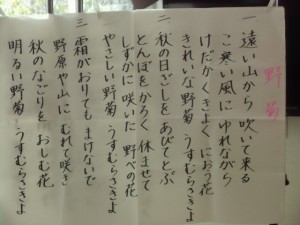 野菊
一 遠い山から 吹いて来る
こ寒い風に ゆれながら
けだかく きよく におう花
きれいな野菊 うすむらさきよ
二 秋の日ざしを あびてとぶ
とんぼを かろく 休ませて
しずかに咲いた 野べの花
やさしい野菊 うすむらさきよ
三 霜がおりても まけないで
野原や山に むれて咲き
秋のなごりを おしむ花
明るい野菊 うすむらさきよ